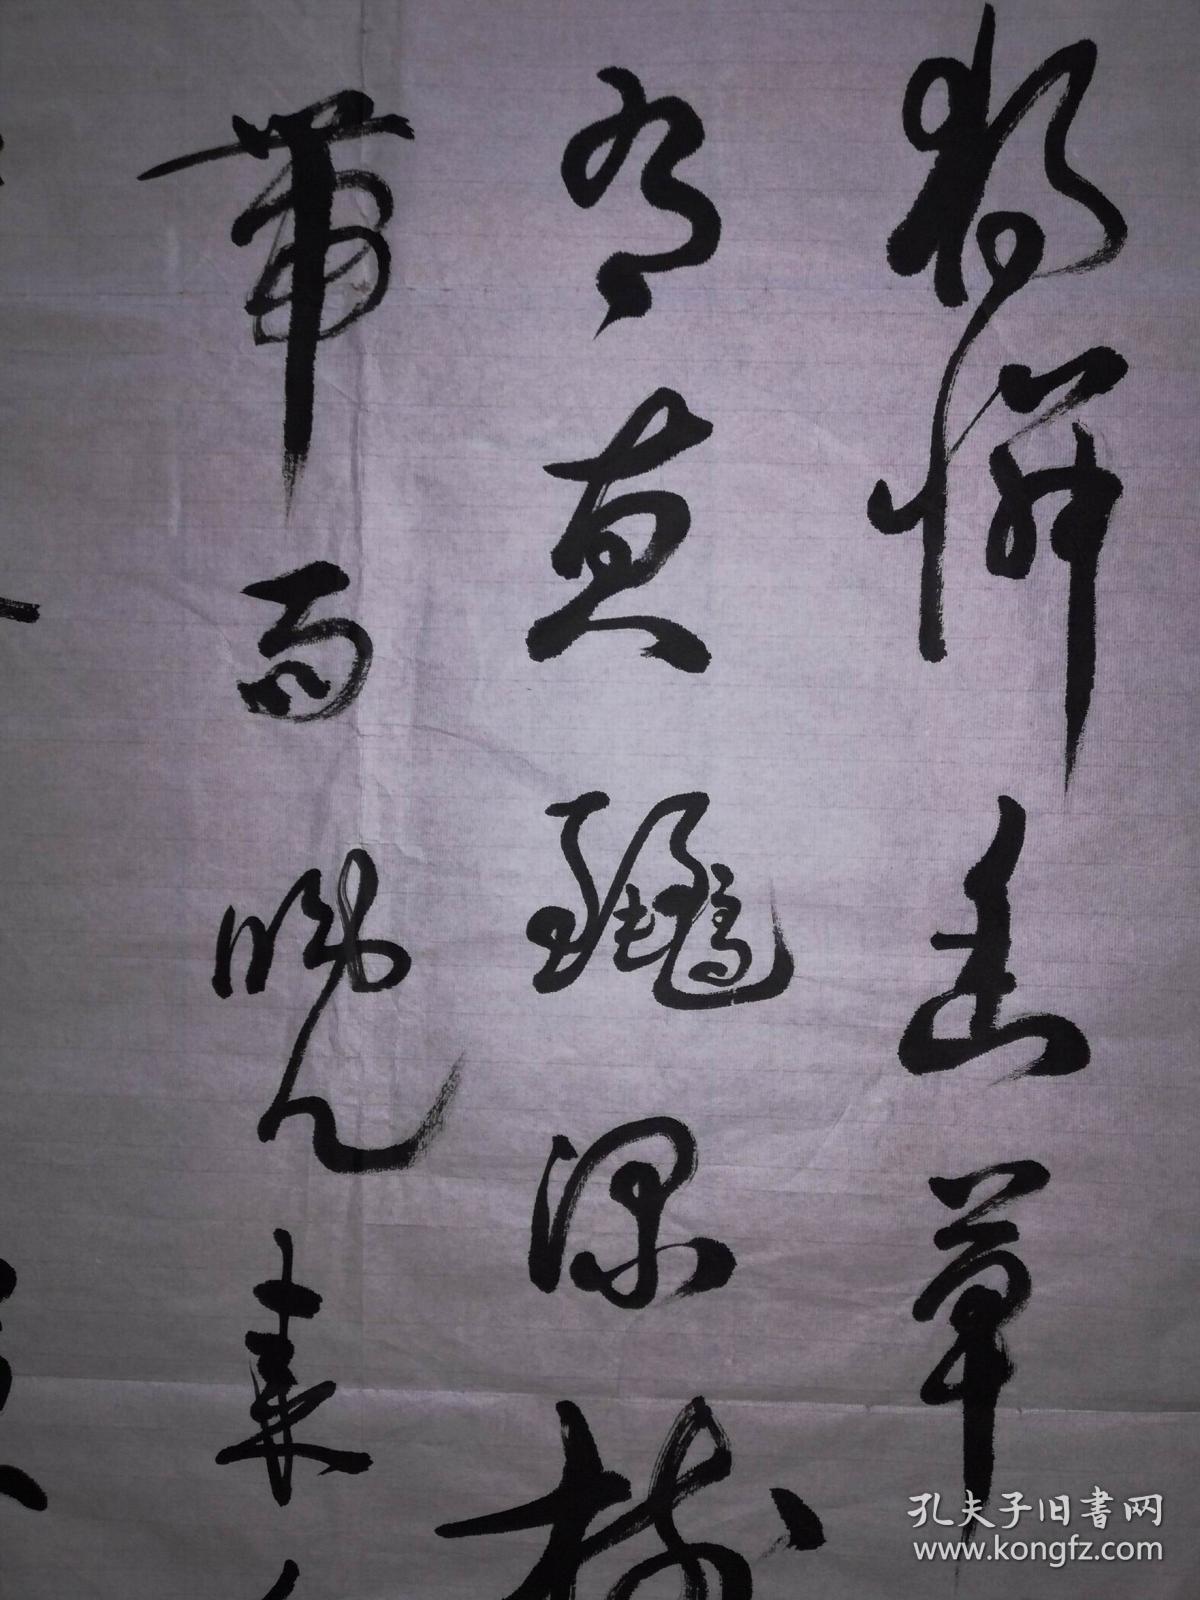 独怜幽草
有黄鹂深树
带雨晚来
孔夫子旧書网
www.kongfz.com